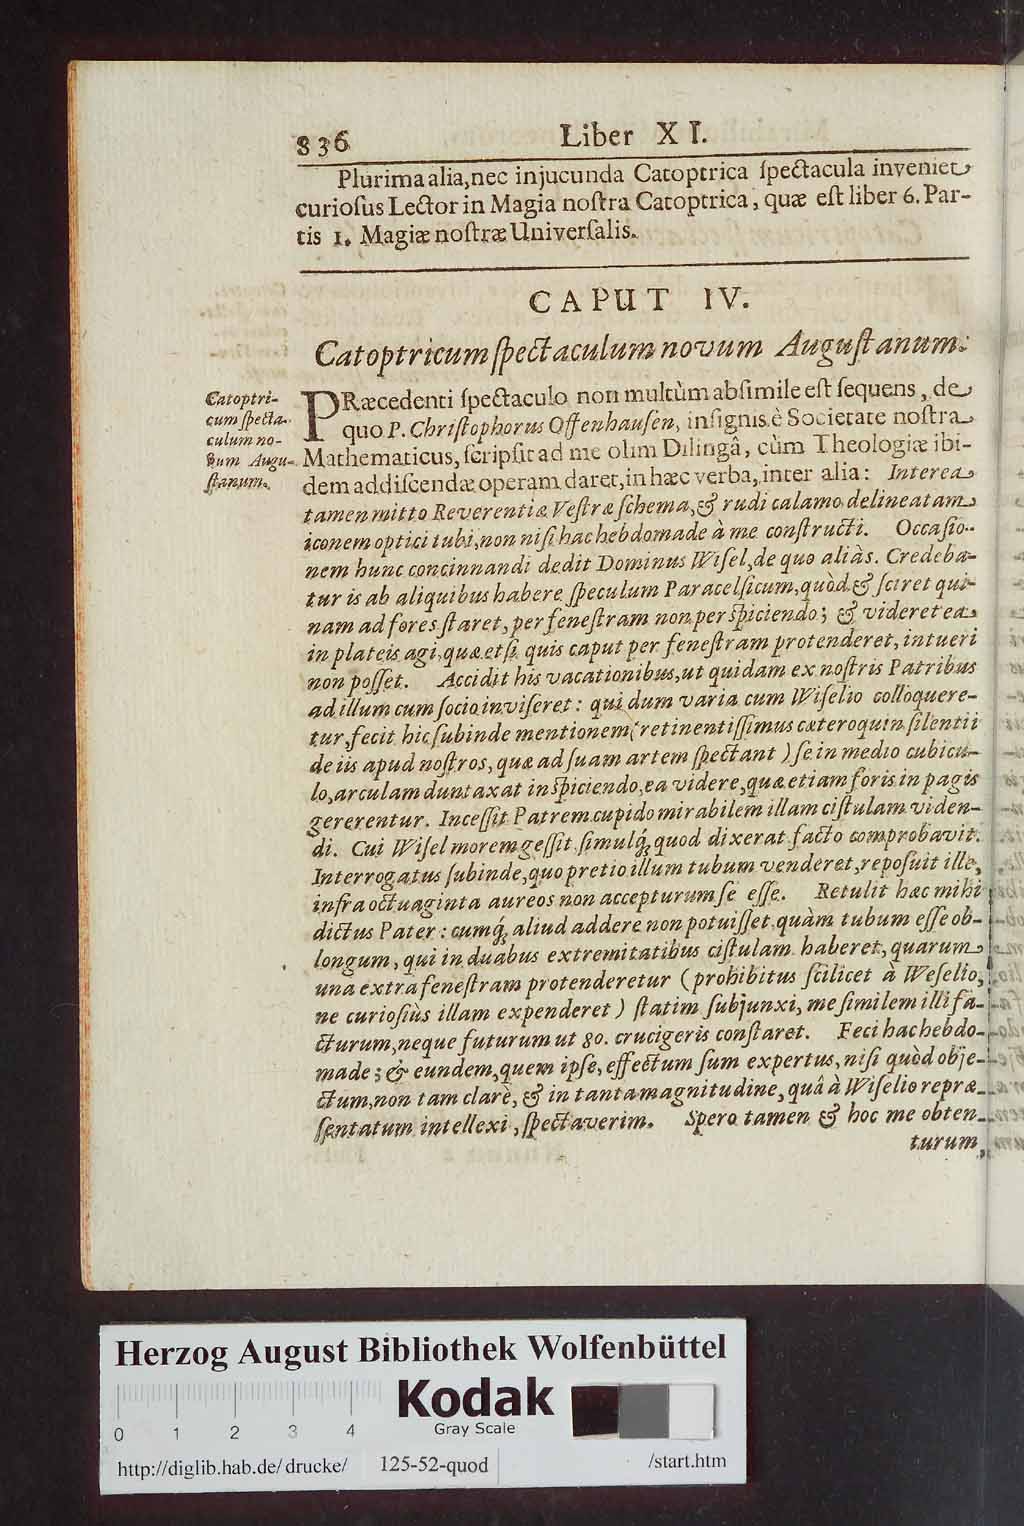 836 Liber XI.
Plurima alia, nec injucunda Catoptrica ſpectacula inveniet
curioſus Lector in Magia noſtra Catoptrica, quæ eſt liber 6. Par-
tis 1. Magiæ noſtræ Univerſalis.
CAPUT IV.
Catoptricum ſpectaculum novum Auguſtanum.
Catoptri-
cum ſpecta-
culum no-
vum Augu-
ſtanum.
PRæcedenti ſpectaculo non multùm abſimile eſt ſequens, de
quo P. Chriſtophorus Offenhauſen, inſignis è Societate noſtra
Mathematicus, ſcripſit ad me olim Dilingâ, cùm Theologiæ ibi-
dem addiſcendæ operam daret, in hæc verba, inter alia: Interea
tamen mitto Reverentiæ Veſtræ ſchema, & rudi calamo delineatam
iconem optici tubi, non niſi hac hebdomade à me conſtructi. Occaſio-
nem hunc concinnandi dedit Dominus Wiſel, de quo aliàs. Credeba-
tur is ab aliquibus habere ſpeculum Paracelſicum, quòd & ſciret qui-
nam ad fores ſtaret, per feneſtram non perſpiciendo; & videret ea
in plateis agi, quæ etſi quis caput per feneſtram protenderet, intueri
non poſſet. Accidit his vacationibus, ut quidam ex noſtris Patribus
ad illum cum ſocio inviſeret: qui dum varia cum Wiſelio colloquere-
tur, fecit hic ſubinde mentionem (retinentiſſimus cæteroquin ſilentii
de iis apud noſtros, quæ ad ſuam artem ſpectant) ſe in medio cubicu-
lo, arculam duntaxat inſpiciendo, ea videre, quæ etiam foris in pagis
gererentur. Inceſſit Patrem cupido mirabilem illam ciſtulam viden-
di. Cui Wiſel morem geſſit ſimulq́; quod dixerat facto comprobavit.
Interrogatus ſubinde, quo pretio illum tubum venderet, repoſuit ille,
infra octuaginta aureos non accepturum ſe eſſe. Retulit hæc mihi
dictus Pater: cumq́; aliud addere non potuiſſet, quàm tubum eſſe ob-
longum, qui in duabus extremitatibus ciſtulam haberet, quarum
una extra feneſtram protenderetur (prohibitus ſcilicet à Weſelio,
ne curioſiùs illam expenderet) ſtatim ſubjunxi, me ſimilem illi fa-
cturum, neque futurum ut 80. crucigeris conſtaret. Feci hac hebdo-
made; & eundem, quem ipſe, effectum ſum expertus, niſi quòd obje-
ctum, non tam clarè, & in tanta magnitudine, quâ à Wiſelio repræ-
ſentatum intellexi, ſpectaverim. Spero tamen & hoc me obten-
turum,
Herzog August Bibliothek Wolfenbüttel
Kodak
Gray Scale
0 1 2 3 4
http://diglib.hab.de/drucke/ 125-52-quod /start.htm